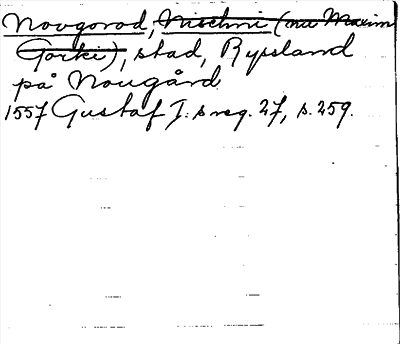 Novgorod, Nischni (nu Maxim
Gorki), stad, Ryssland
på Nougård
1557 Gustaf I:s reg. 27, s. 259.